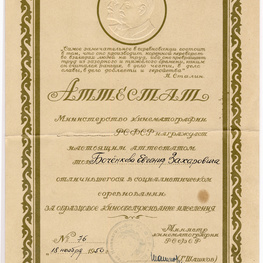 "Самое замечательное в соревновании состоит
в том, что оно производит коренной переворот
во взглядах людей на труд, ибо оно превращает
труд из зазорного и тяжёлого бремени, каким
он считался раньше, в дело чести, в дело
славы, в дело доблести и геройства"
И. Сталин.
Аттестат
Министерство кинематографии
РСФСР награждает
настоящим аттестатом
тов Боченкова Евгения Захаровича
отличившегося в социалистическом
соревновании
за образцовое кинообслуживание населения
№ 76
15 ноября 1950 г.
Министр
кинематографии
РСФСР
(Шашков)